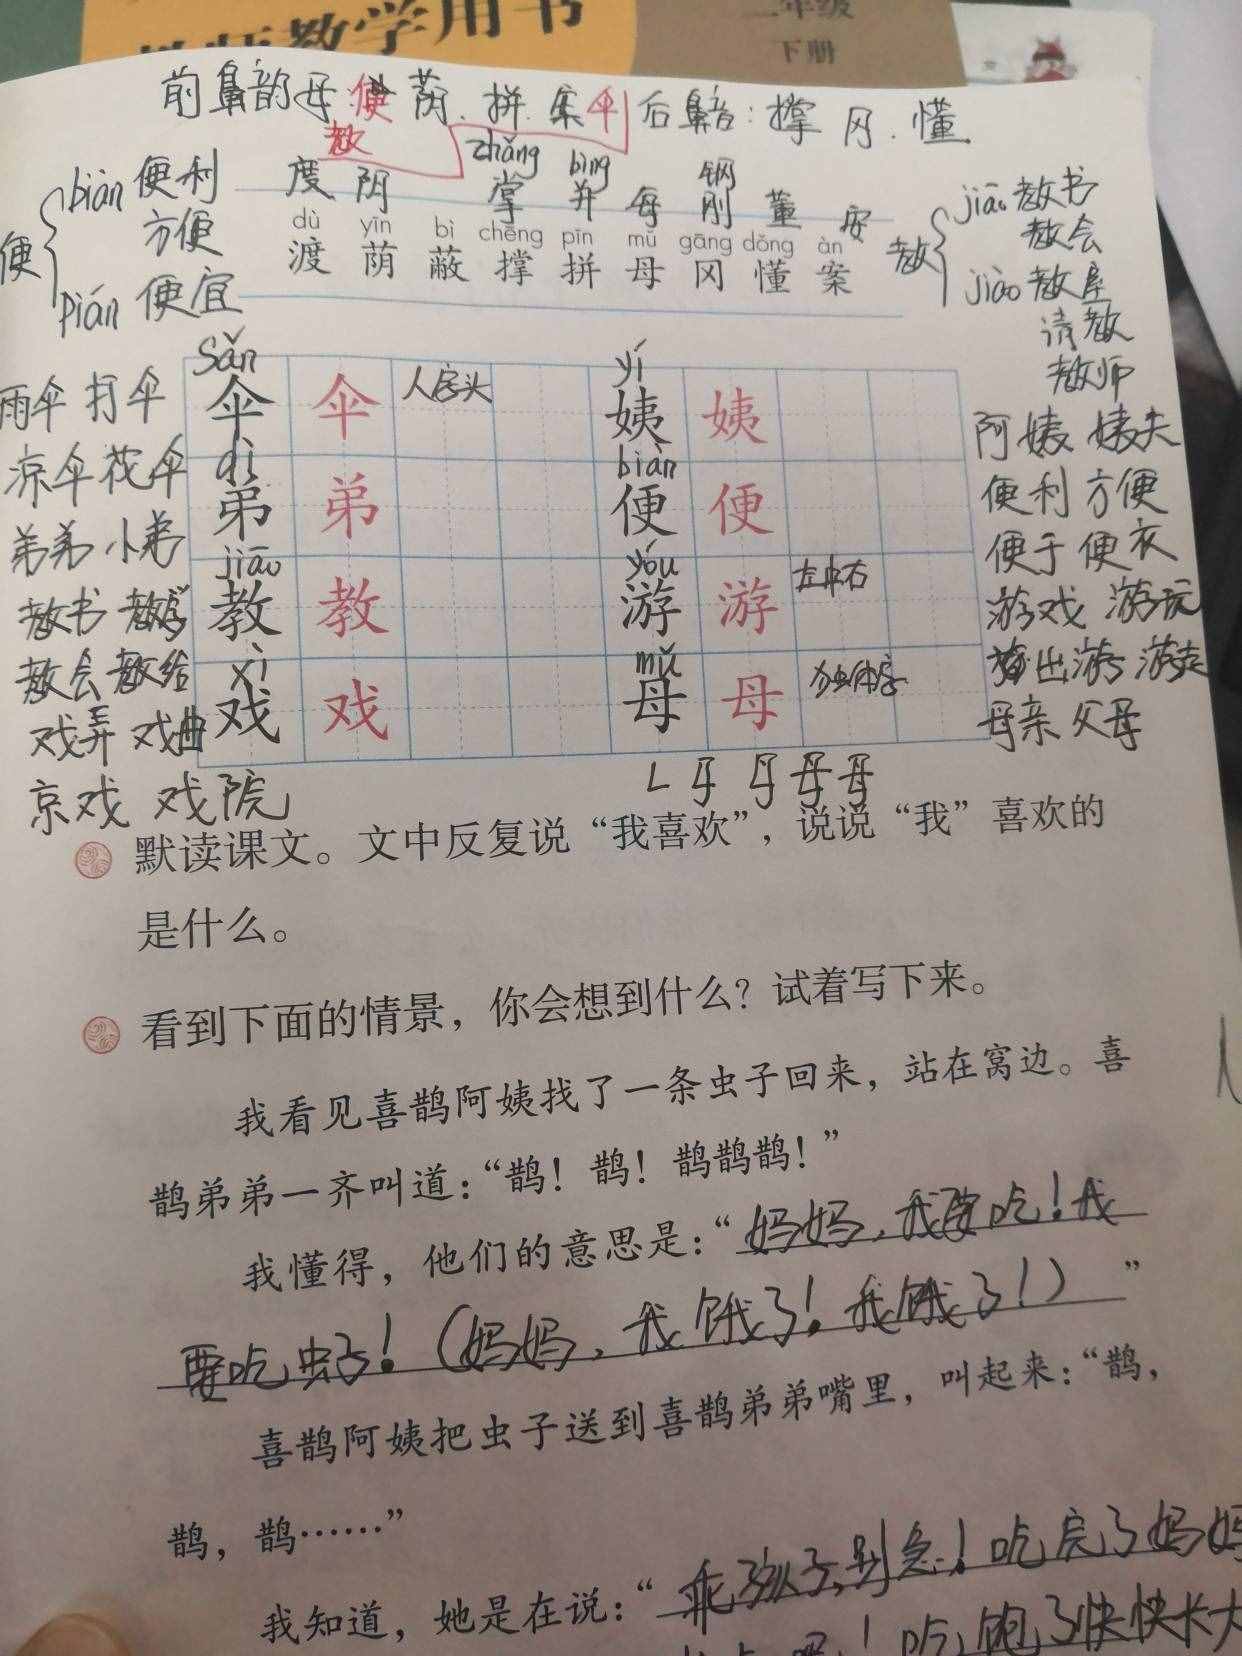 教师教学用书
二年级
下册
前鼻韵母:便 荫 拼 案 伞 后鼻音:撑 冈 懂
教
zhǎng bìng
biàn 便利 度 阴 掌 并 每 刚 钢 董 安 jiāo 教书
便 方便 教 教会
dù yīn bì chēng pīn mǔ gāng dǒng àn
渡 荫 蔽 撑 拼 母 冈 懂 案
pián 便宜 jiào 教屋
请教
教师
sǎn yí
雨伞 打伞 伞 伞 人字头 姨 姨 阿姨 姨夫
凉伞 花伞
dì biàn
弟弟 小弟 弟 弟 便 便 便利 方便
便于 便衣
jiāo yóu
教书 教学 教 教 游 游 左中右 游戏 游玩
教会 教给 出游 游走
xì mǔ
戏弄 戏曲 戏 戏 母 母 独体字 母亲 父母
京戏 戏院
默读课文。文中反复说“我喜欢”，说说“我”喜欢的
是什么。
看到下面的情景，你会想到什么？试着写下来。
我看见喜鹊阿姨找了一条虫子回来，站在窝边。喜
鹊弟弟一齐叫道：“鹊！鹊！鹊鹊鹊！”
我懂得，他们的意思是：“妈妈，我要吃！我
要吃虫子！（妈妈，我饿了！我饿了！）”
喜鹊阿姨把虫子送到喜鹊弟弟嘴里，叫起来：“鹊，
鹊，鹊……”
我知道，她是在说：“乖孩子，别急！吃完了妈妈
吃饱了快快长大